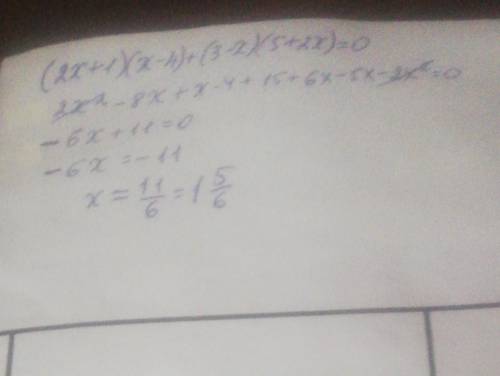 (2x+1)(x-4)+(3-x)(5+2x)=0
2x² - 8x + x - 4 + 15 + 6x - 5x - 2x² = 0
- 6x + 11 = 0
- 6x = - 11
x = 11/6 = 1 5/6